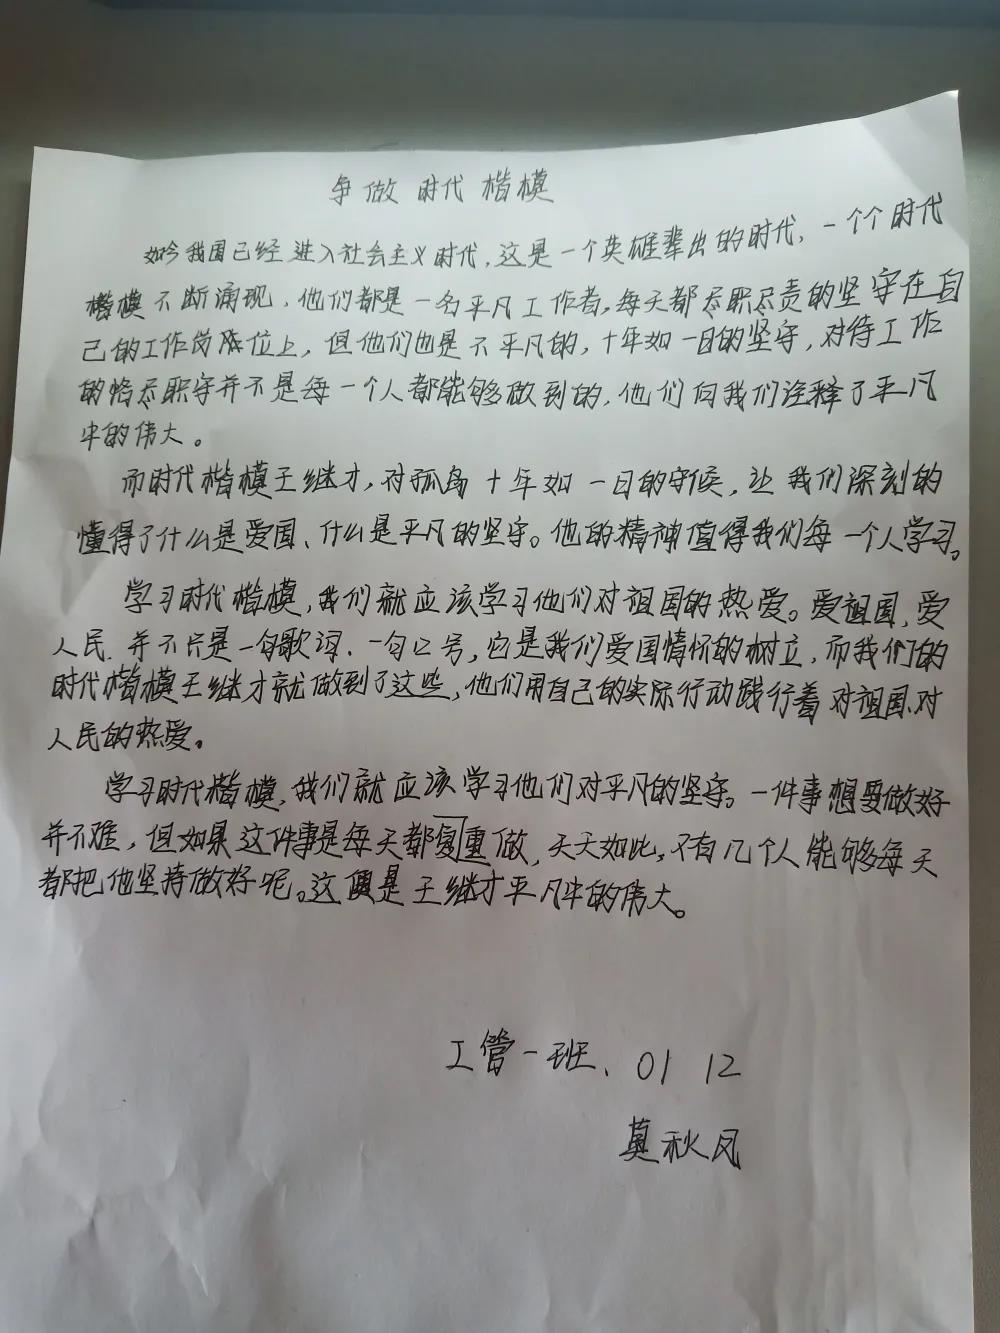 争做时代楷模
如今我国已经进入社会主义时代,这是一个英雄辈出的时代,一个个时代
楷模不断涌现,他们都是一名平凡工作者,每天都尽职尽责的坚守在自
己的工作岗位上,但他们也是不平凡的,十年如一日的坚守,对待工作
的恪尽职守并不是每一个人都能够做到的,他们向我们诠释了平凡
中的伟大。
而时代楷模王继才,对孤岛十年如一日的守候,让我们深刻的
懂得了什么是爱国、什么是平凡的坚守。他的精神值得我们每一个人学习。
学习时代楷模,我们就应该学习他们对祖国的热爱。爱祖国,爱
人民,并不只是一句歌词、一句口号,它是我们爱国情怀的树立,而我们的
时代楷模王继才就做到了这些,他们用自己的实际行动践行着对祖国、对
人民的热爱。
学习时代楷模,我们就应该学习他们对平凡的坚守。一件事想要做好
并不难,但如果这件事是每天都复重做,天天如此,又有几个人能够每天
都把他坚持做好呢。这便是王继才平凡中的伟大。
工管一班、01 12
莫秋凤